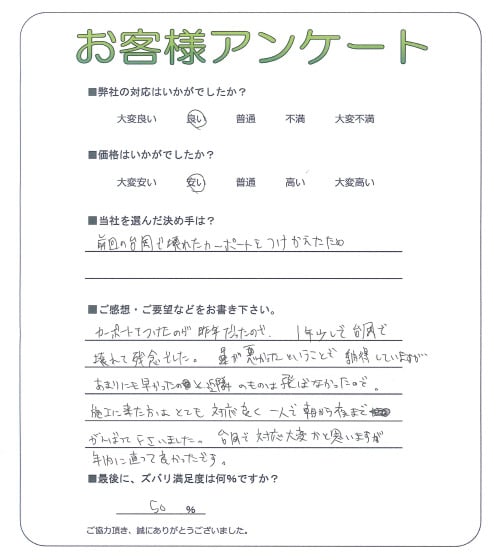 お客様アンケート
■弊社の対応はいかがでしたか？
大変良い 良い 普通 不満 大変不満
■価格はいかがでしたか？
大変安い 安い 普通 高い 大変高い
■当社を選んだ決め手は？
前回の台風で壊れたカーポートをつけかえたため
■ご感想・ご要望などをお書き下さい。
カーポートをつけたのが昨年だったので、1年少しで台風で
壊れて残念でした。運が悪かったということで納得していますが
あまりにも早かったのと近隣のものは飛ばなかったので。
施工に来た方はとても対応良く一人で朝から夜まで
がんばって下さいました。台風で対応大変かと思いますが
年内に直って良かったです。
■最後に、ズバリ満足度は何％ですか？
50 ％
ご協力頂き、誠にありがとうございました。